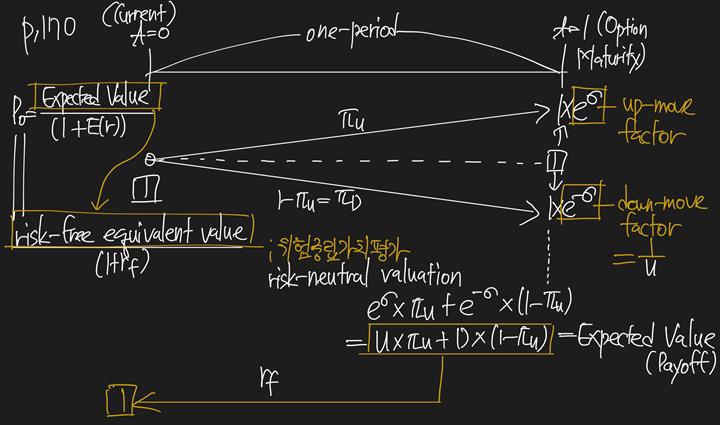 p.170
(Current)
t=0
one-period
t=1 (Option
Maturity)
P₀ = Expected Value
(1+E(r))
πu
1×e^σ up-move
factor
1
1
1-πu = πD
1×e^-σ down-move
factor
= 1/u
risk-free equivalent value
(1+rf)
; 위험중립가치평가
risk-neutral valuation
e^σ × πu + e^-σ × (1-πu)
= U×πu + D×(1-πu) = Expected Value
(Payoff)
rf
1